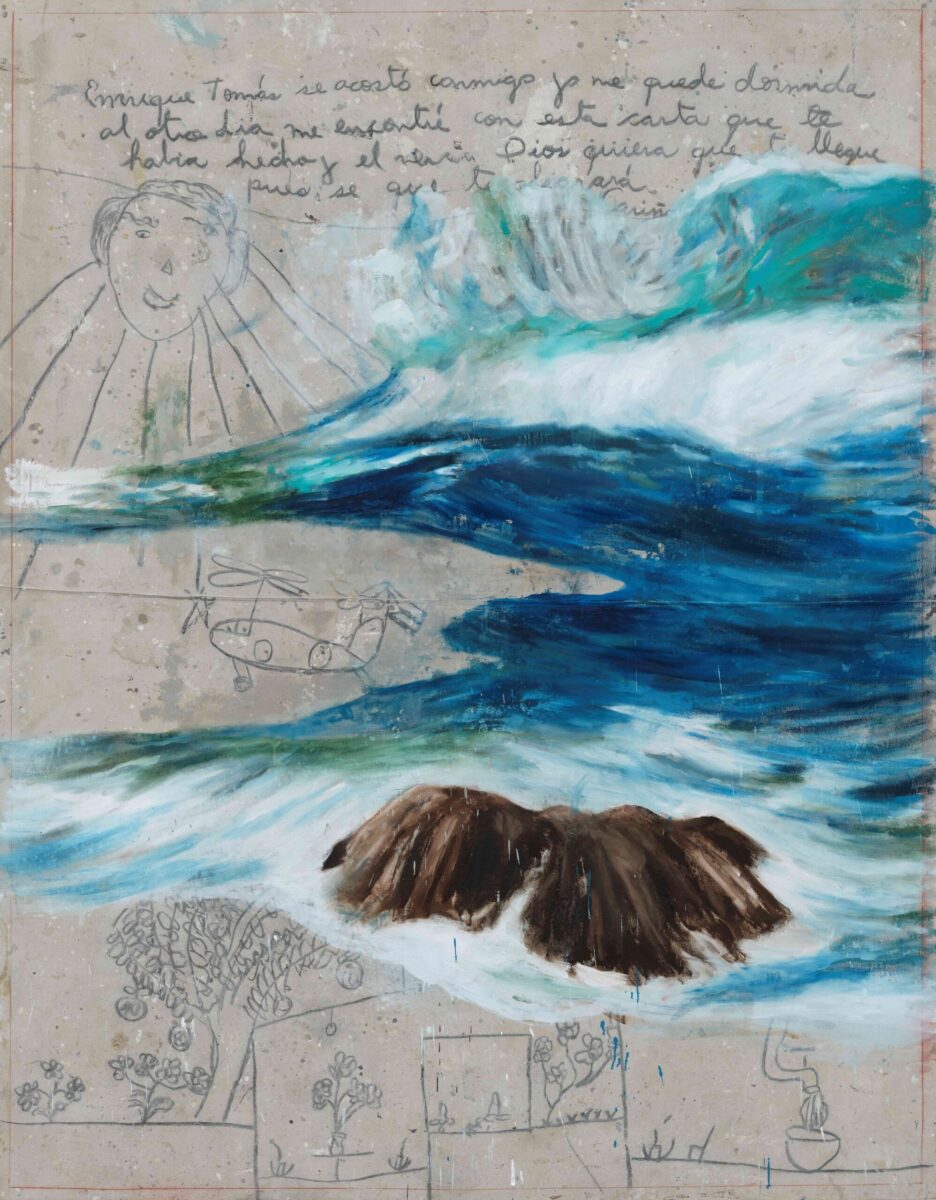 Enrique Tomás se acostó conmigo yo me quede dormida
al otro dia me encontré con esta carta que te
habia hecho y el Dios quiera que t llegue
pues se que t ará
ariñ